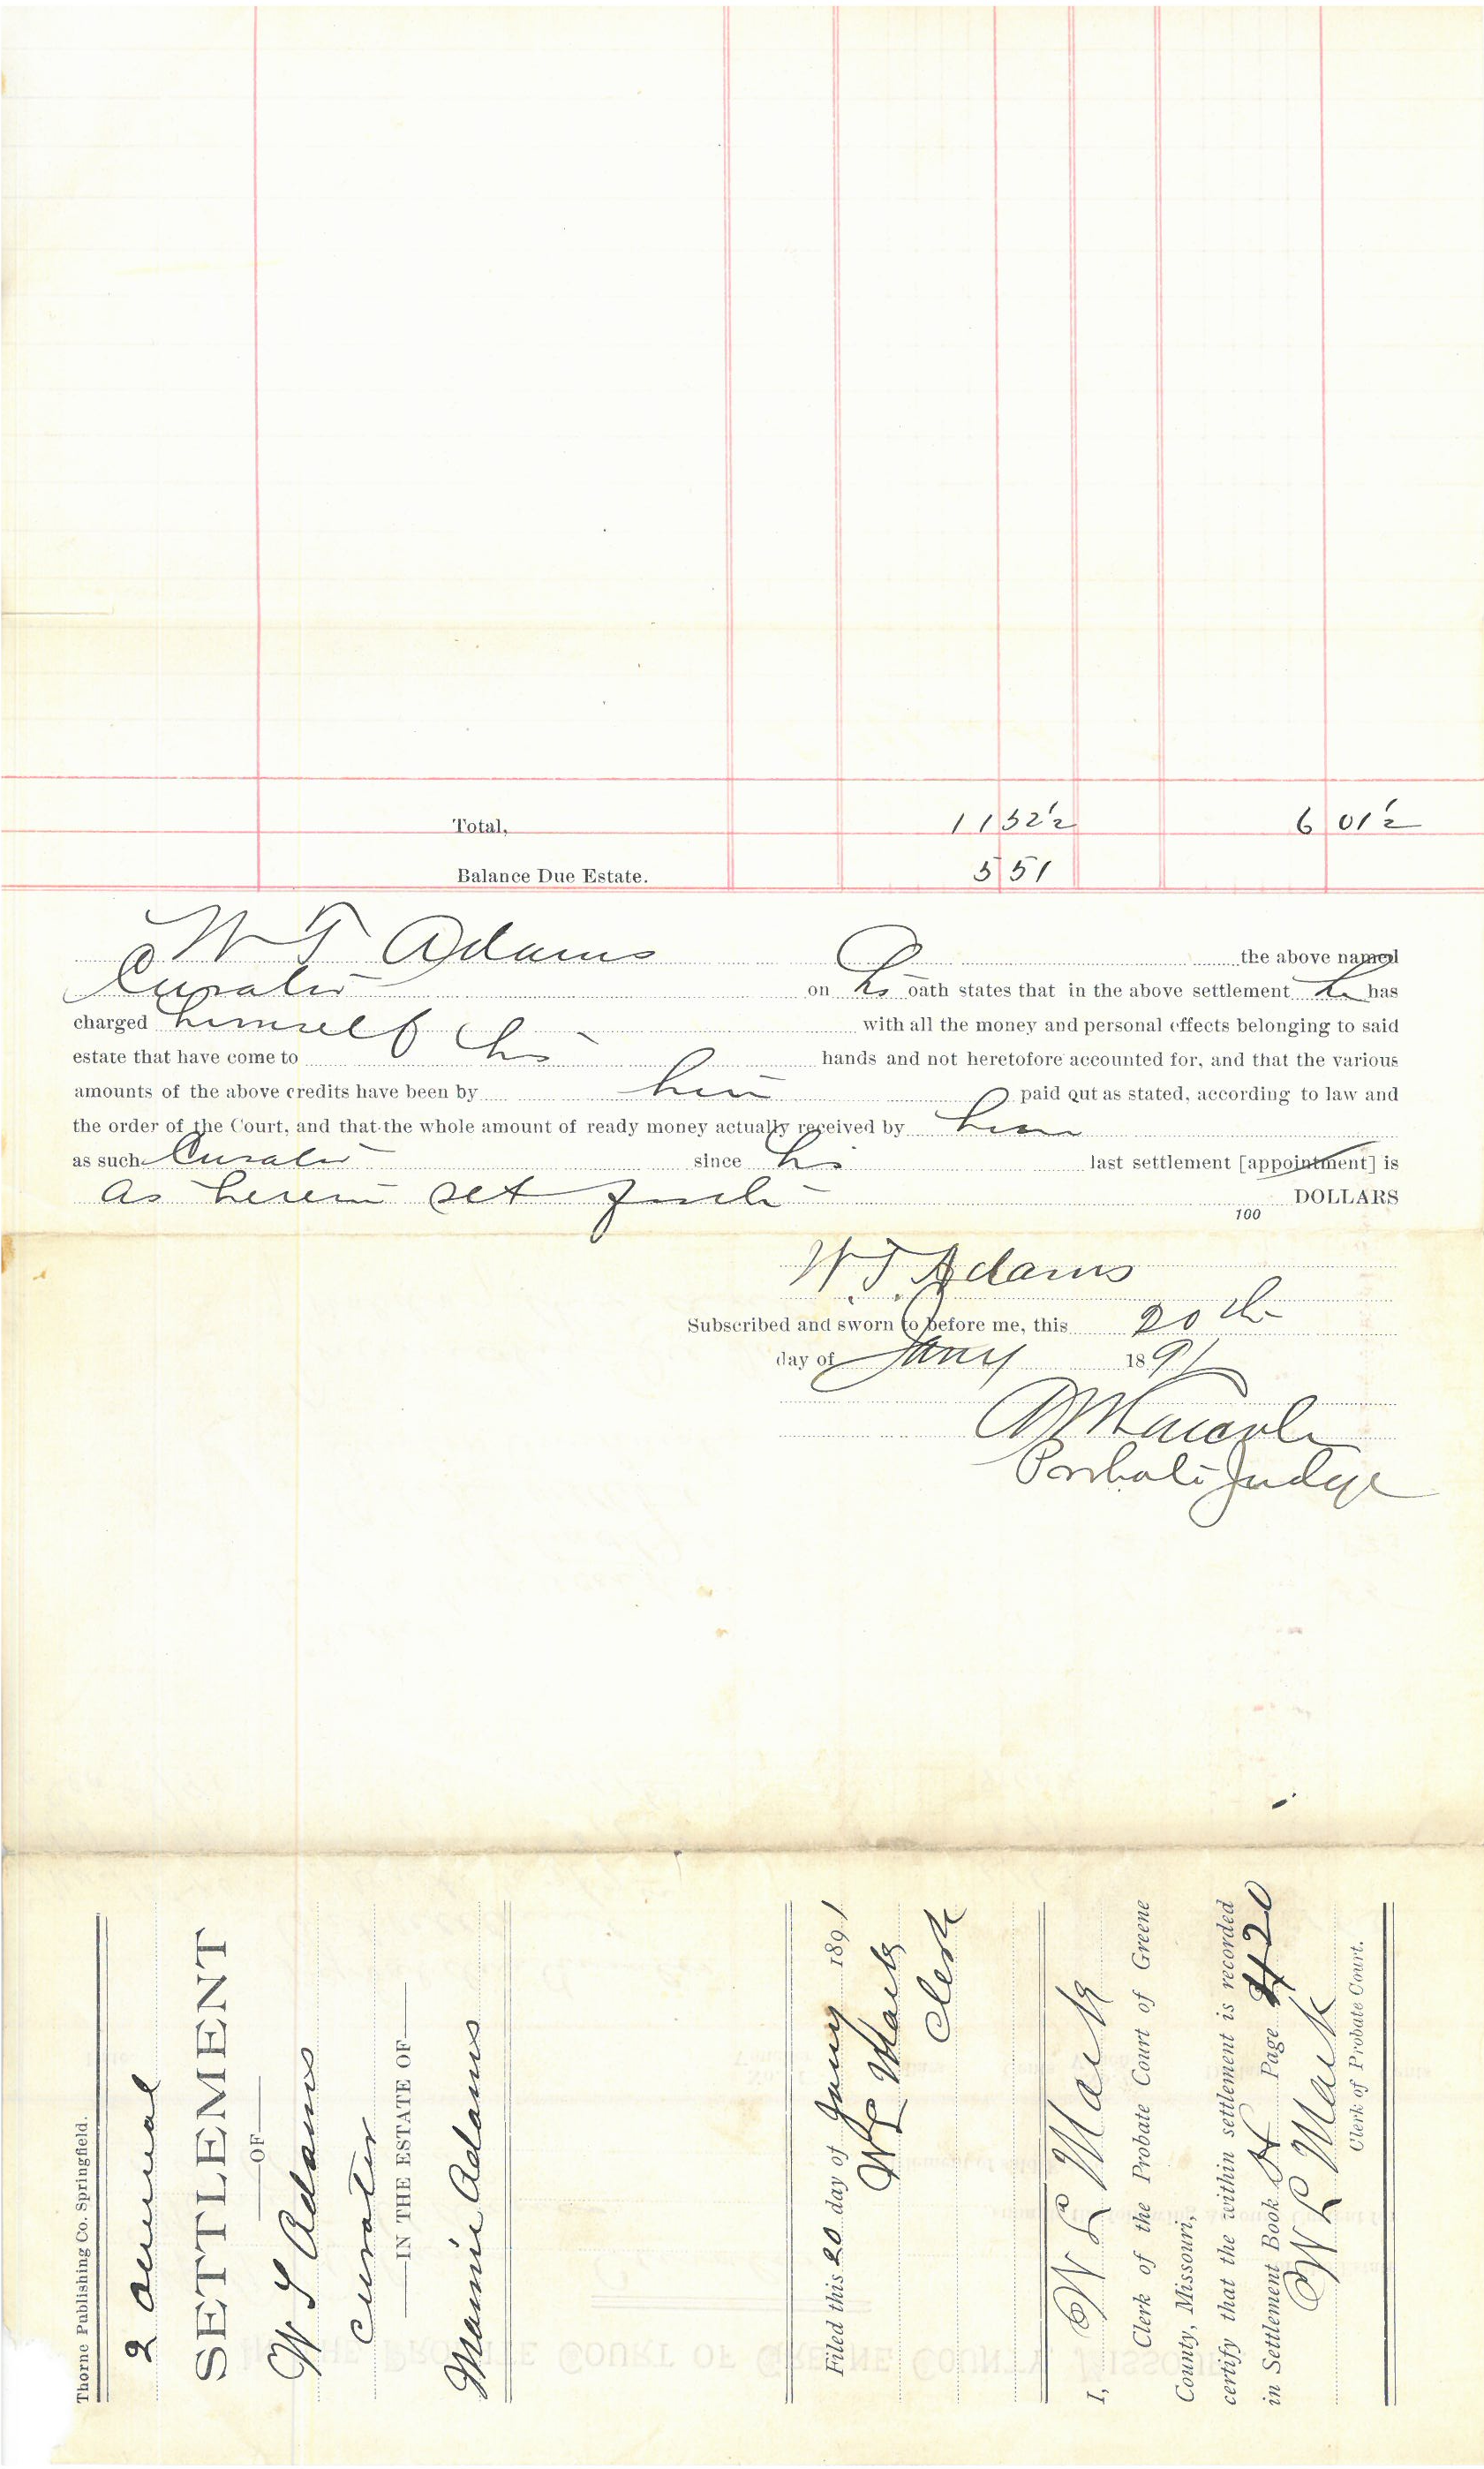 Total, 11 52½ 6 01½
Balance Due Estate. 5 51
W T Adams the above named
Curator on his oath states that in the above settlement he has
charged himself with all the money and personal effects belonging to said
estate that have come to his hands and not heretofore accounted for, and that the various
amounts of the above credits have been by him paid out as stated, according to law and
the order of the Court, and that the whole amount of ready money actually received by him
as such Curator since his last settlement [appointment] is
as herein set forth DOLLARS
100
W. T. Adams
Subscribed and sworn to before me, this 20th
day of Jany 1891
Probate Judge
Thorne Publishing Co. Springfield.
2 annual
SETTLEMENT
—OF—
W T Adams
Curator
—IN THE ESTATE OF—
Mamie Adams
Filed this 20 day of Jany 1891
W L Mack
Clerk
I, W L Mack
Clerk of the Probate Court of Greene
County, Missouri,
certify that the within settlement is recorded
in Settlement Book H Page 420
W L Mack
Clerk of Probate Court.